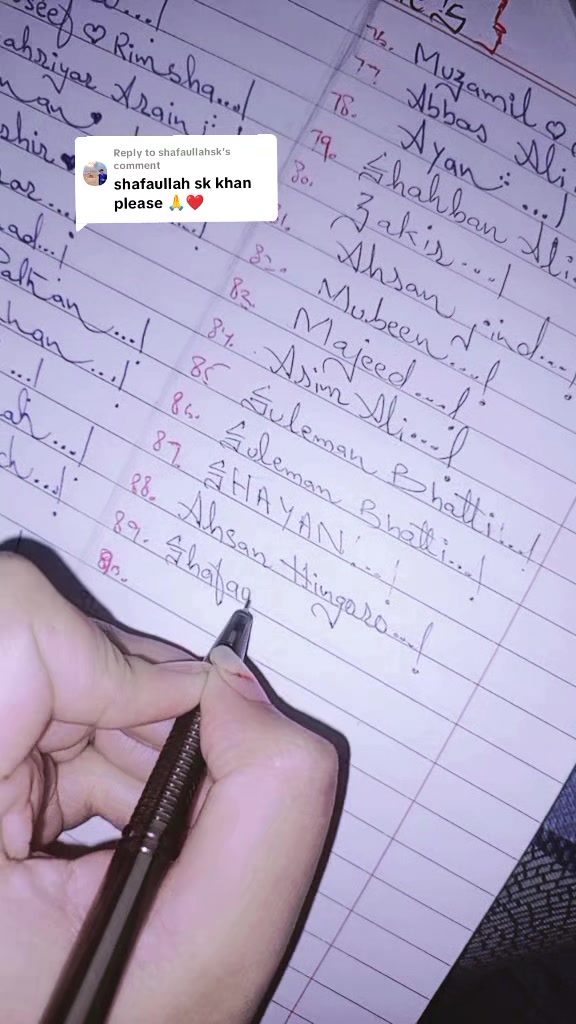 Reply to shafaullahsk's
comment
shafaullah sk khan
please 🙏❤️
♡ Rimsha...!
Arain
76. Muzamil ♡
77. Abbas Ali
78. Ayan ...!
79. Shahban Ali
80. Zakir ...!
81. Ahsan jind...!
82. Mubeen ...!
83. Majeed ...!
84. Asim Ali...!
85 Suleman Bhatti...!
86. Suleman Bhatti...!
87. SHAYAN ...!
88. Ahsan Hingoro...!
89. Shafaq
90.